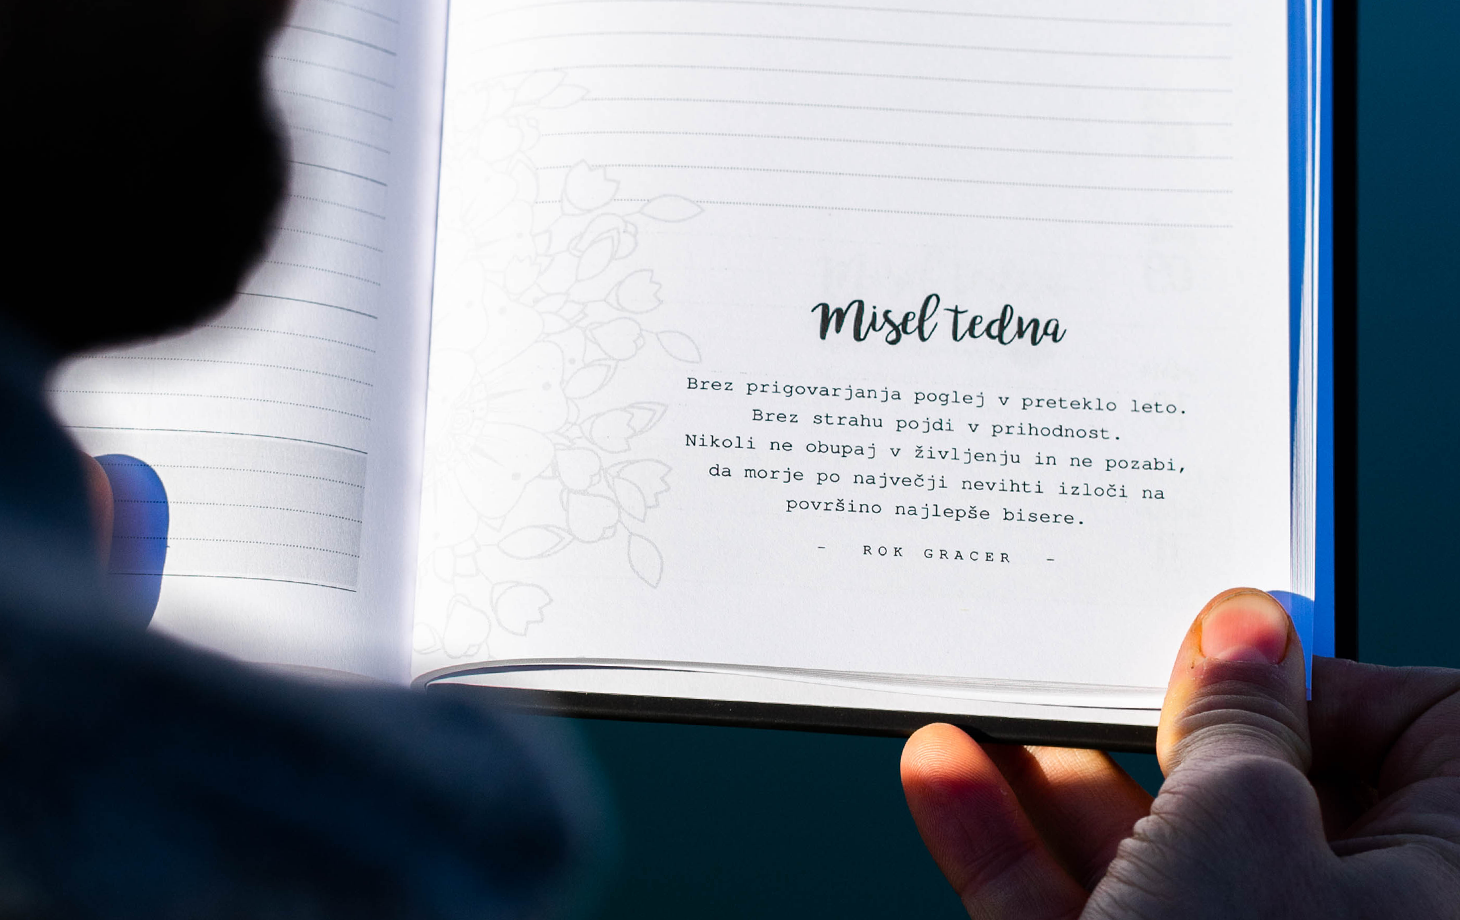 Misel tedna
Brez prigovarjanja poglej v preteklo leto.
Brez strahu pojdi v prihodnost.
Nikoli ne obupaj v življenju in ne pozabi,
da morje po največji nevihti izloči na
površino najlepše bisere.
- ROK GRACER -